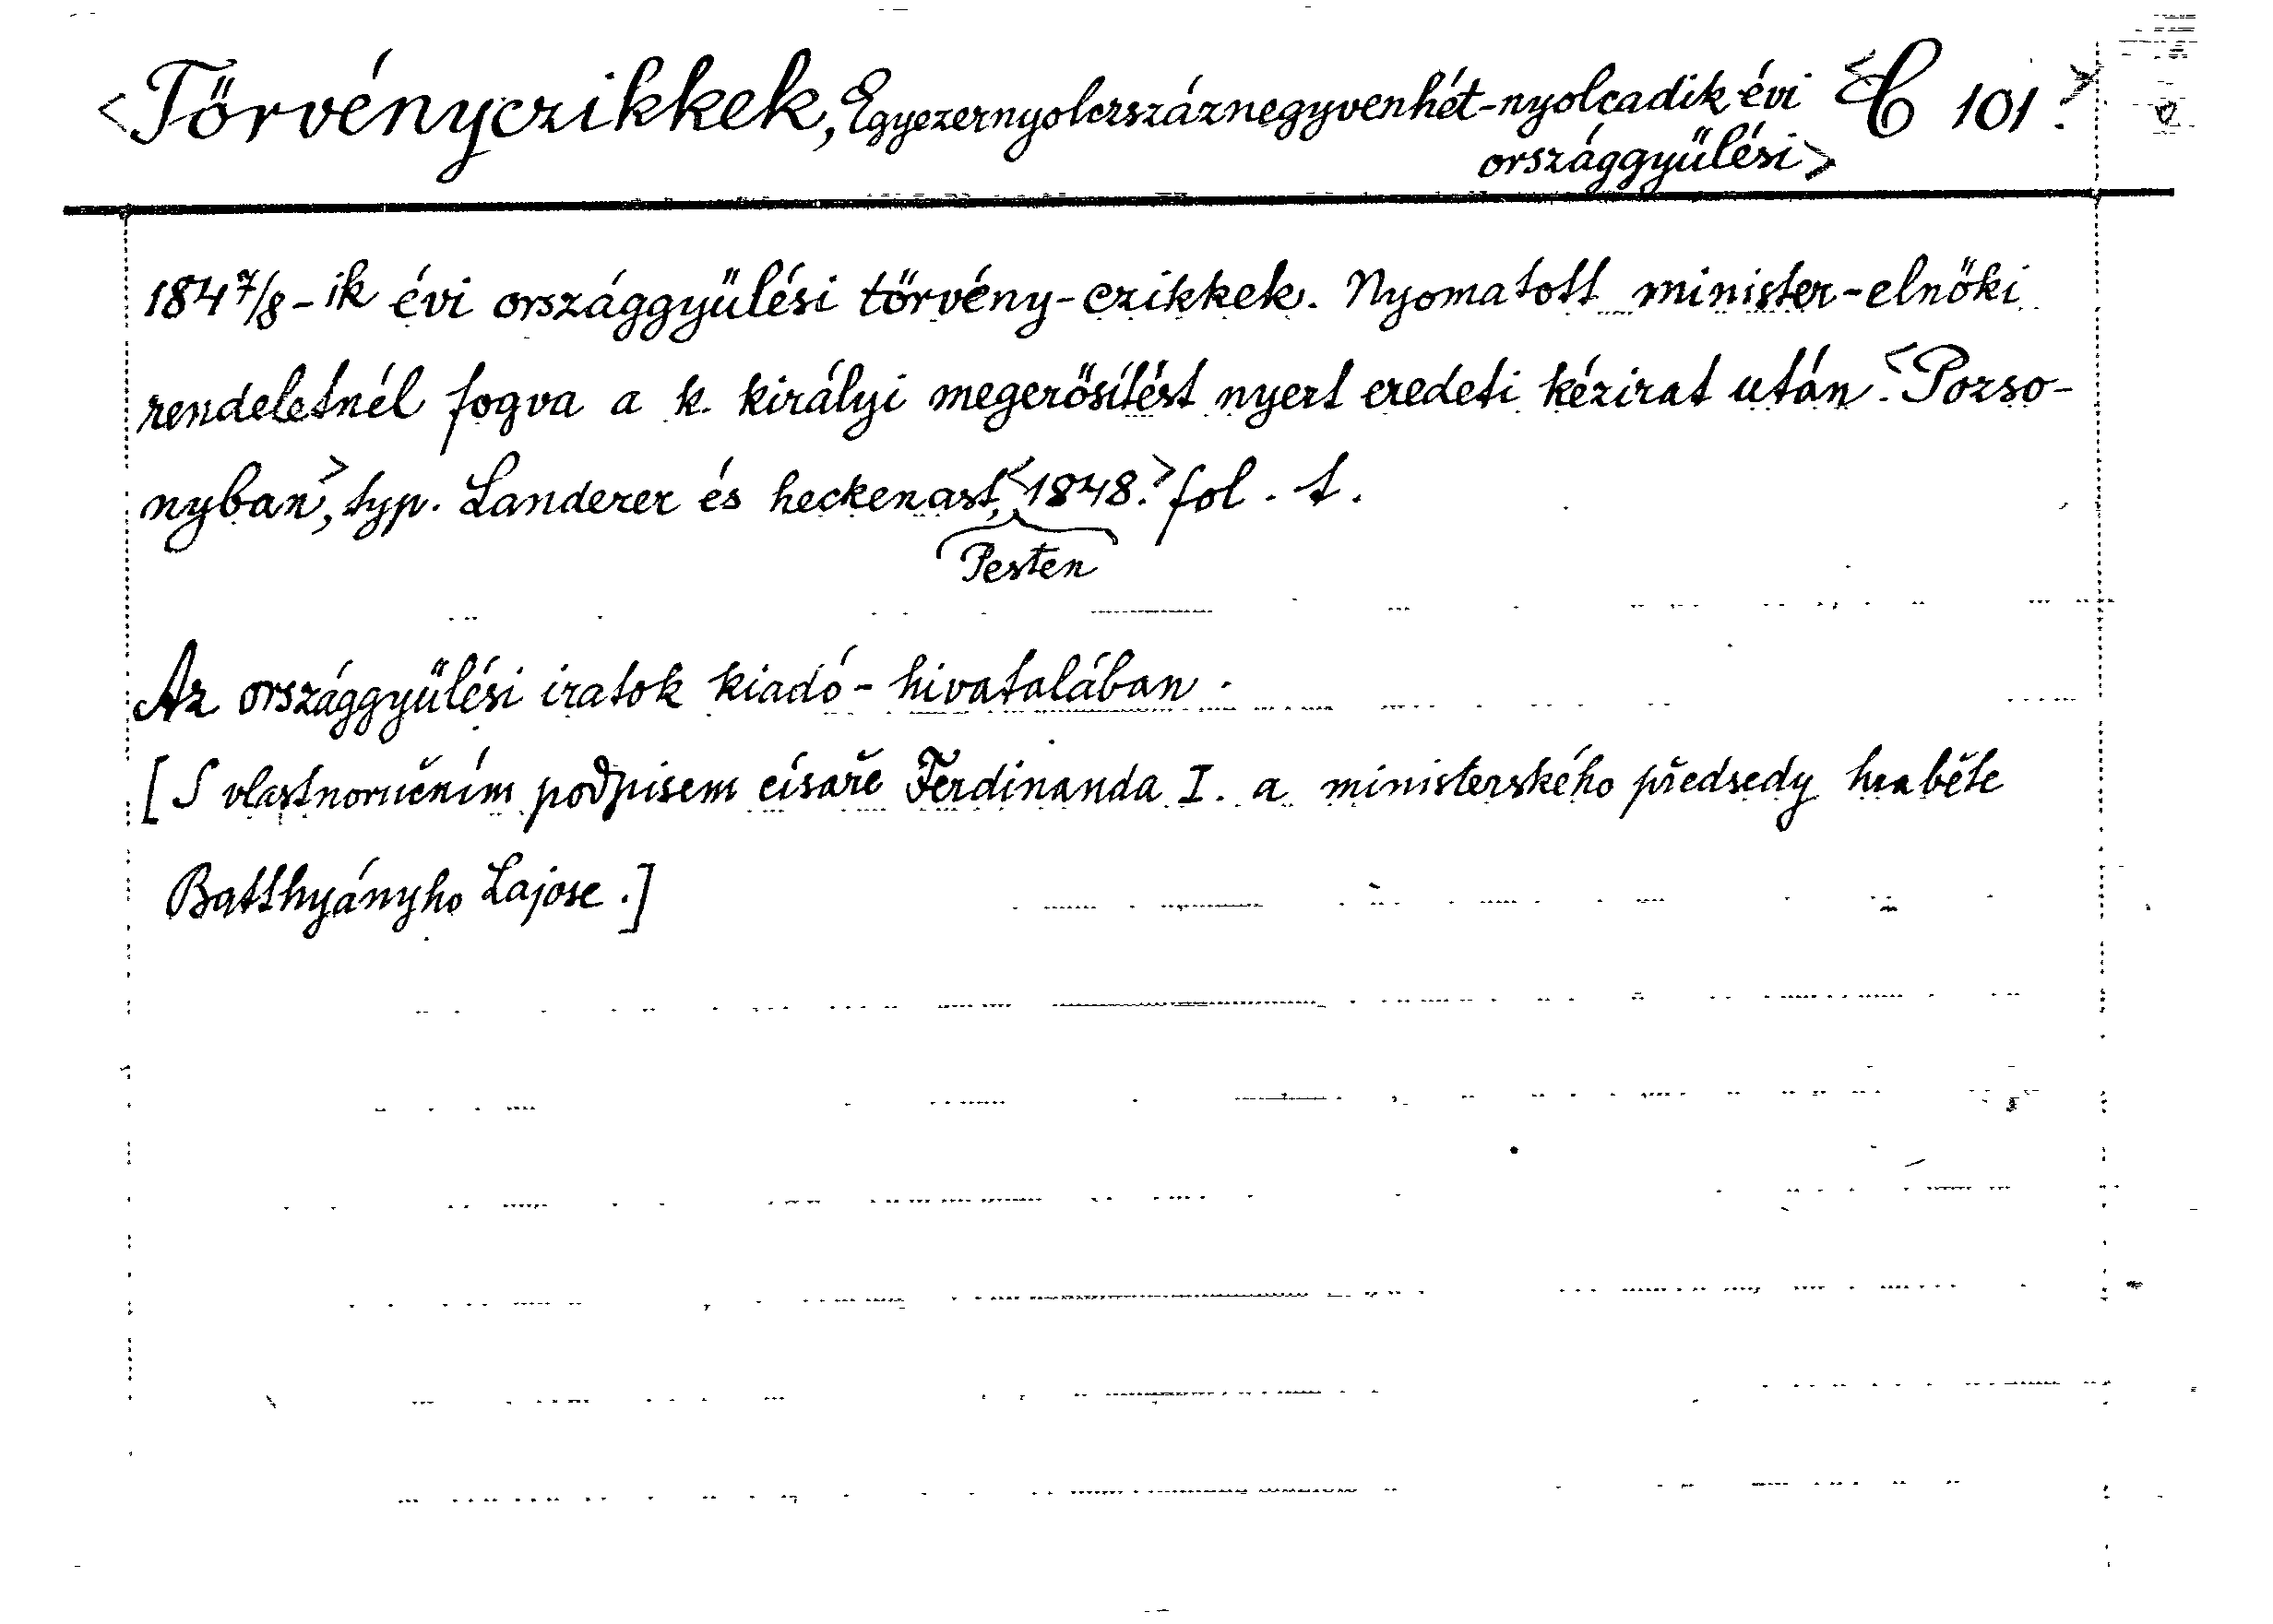 <Törvényczikkek, Egyezernyolcrszáznegyvenhét-nyolcadik évi <C 101.>
országgyülési>
1847/8-ik évi országgyülési törvény-czikkek. Nyomatott minister-elnöki
rendeletnél fogva a k. királyi megerősítést nyert eredeti kézirat után. <Pozso-
nyban>, typ. Landerer és heckenast, <1848.> fol. t.
Pesten
Az országgyülési iratok kiadó-hivatalában.
[S vlastnoručním podpisem císaře Ferdinanda I. a ministerského předsedy hraběte
Batthyányho Lajose.]